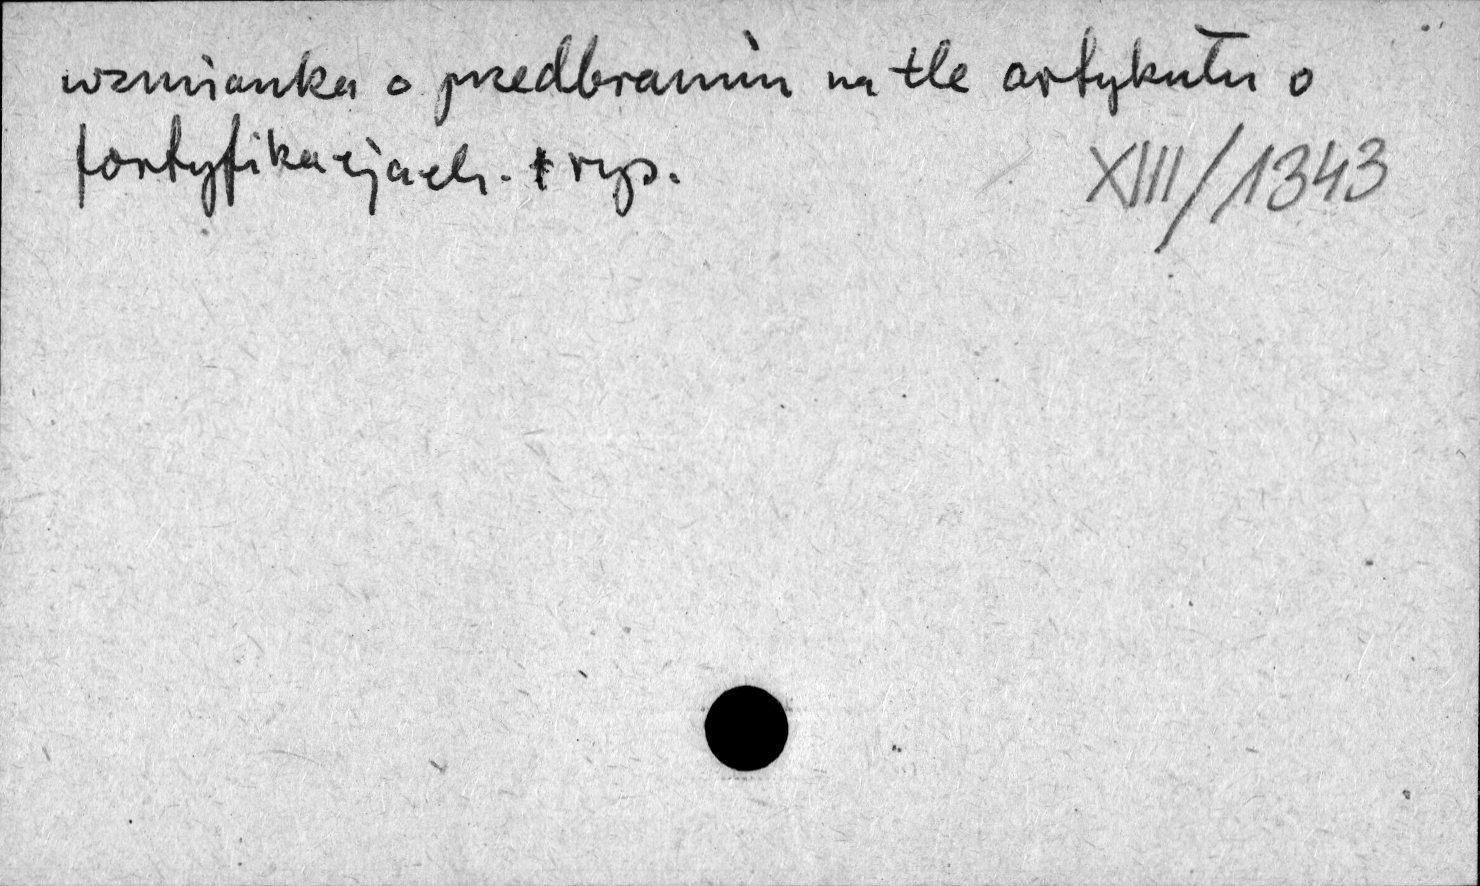 wzmianka o przedbramiu na tle artykułu o
fortyfikacjach. + rys.
XIII/1343